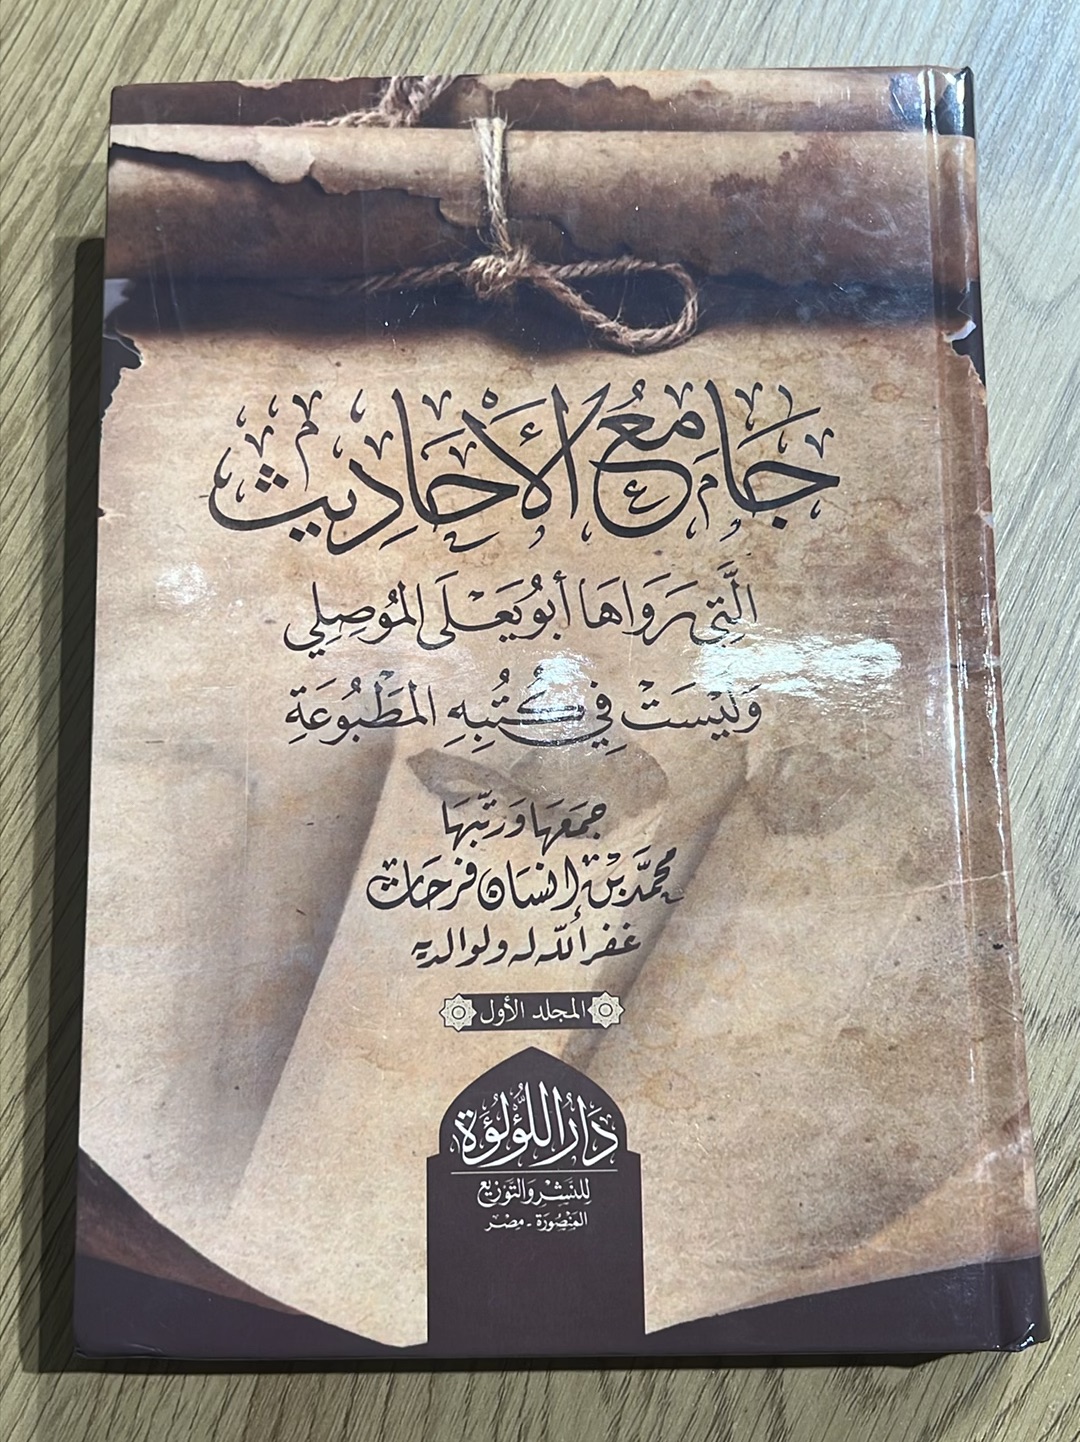 جَامِعُ الأَحَادِيث
الَّتِي رَوَاهَا أبُو يَعْلَى المُوصِلِي
وَلَيْسَتْ فِي كُتُبِهِ المَطْبُوعَةِ
جمَعَهَا وَرَتَّبَهَا
محمَّد بْن إنسان فرحات
غفر الله له ولوالديه
المجلد الأول
دَارُ اللُّؤْلُؤَة
لِلنَّشْرِ وَالتَّوْزِيع
المَنْصُورَة - مِصْر